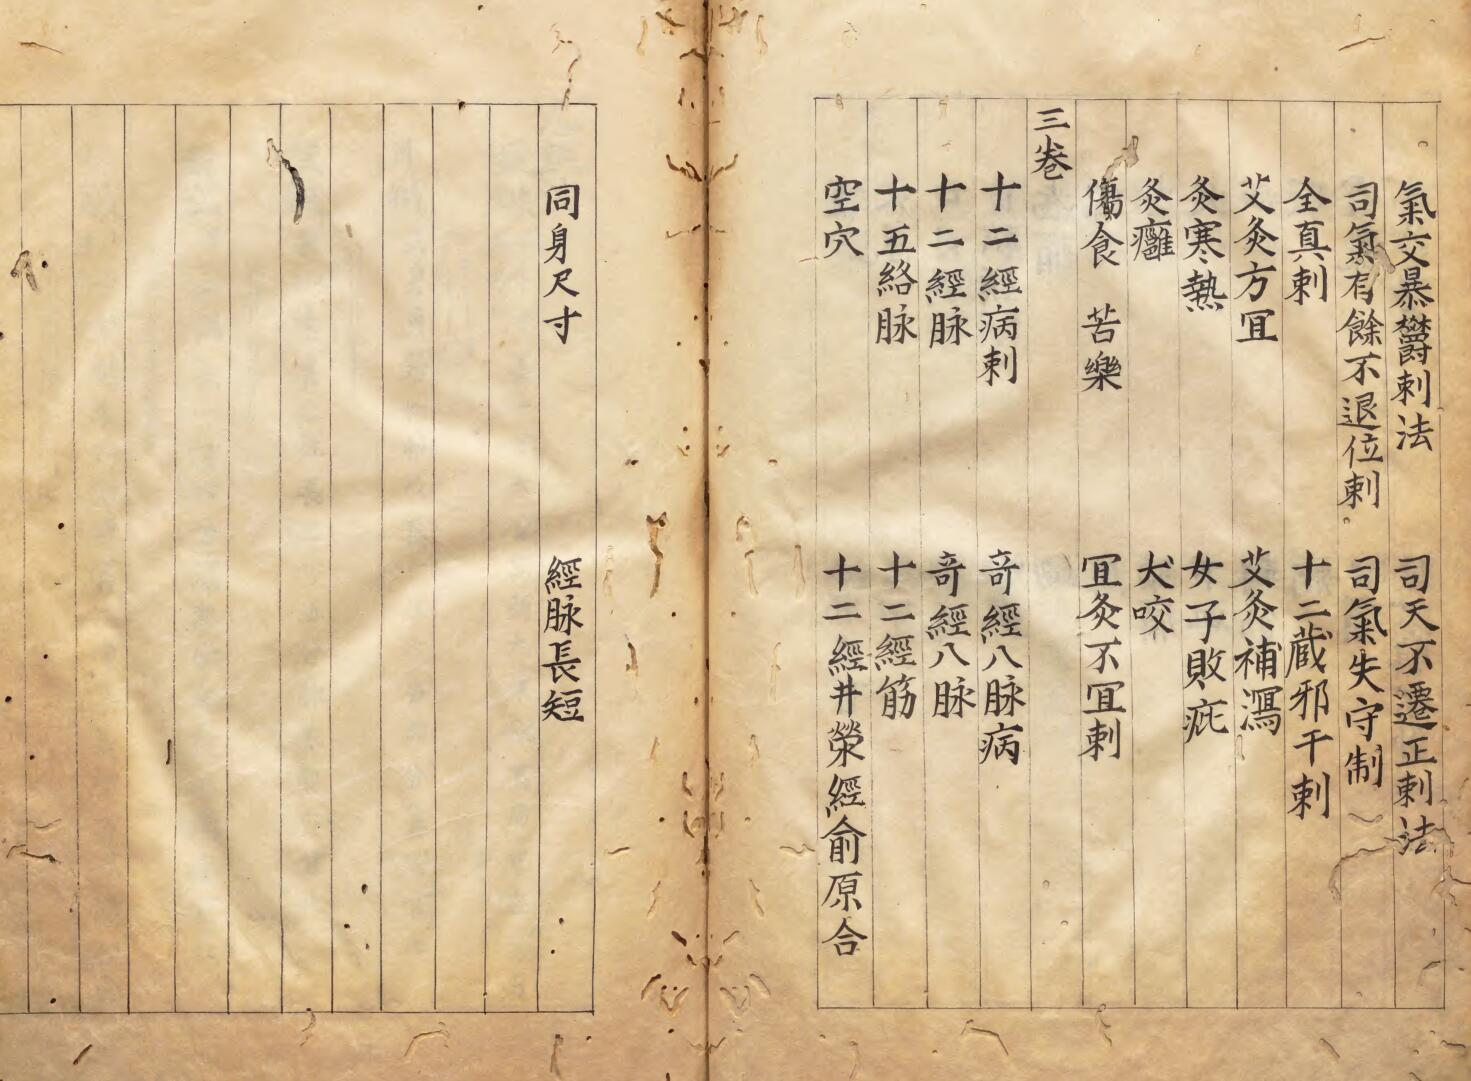 氣交暴鬱刺法　司天不遷正刺法
司氣有餘不退位刺　司氣失守制
全真刺　十二蔵邪干刺
艾灸方冝　艾灸補瀉
灸寒熱　女子敗疪
灸癰　犬咬
傷食　苦樂　冝灸不冝刺
三巻
十二經病刺　竒經八脉病
十二經脉　竒經八脉
十五絡脉　十二經筋
空穴　十二經井滎經俞原合
同身尺寸　經脉長短